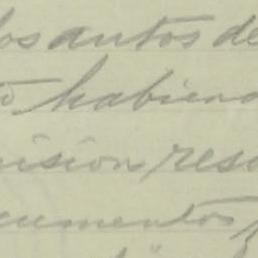 los autos de
habiend
ision res
cumentos